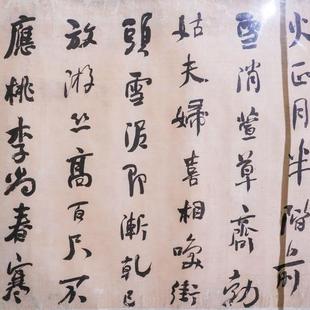 火正月半階前
雪消萱草齊勃
姑夫婦喜相喚街
頭雪泥即漸乾已
放游絲高百尺不
應桃李尚春寒